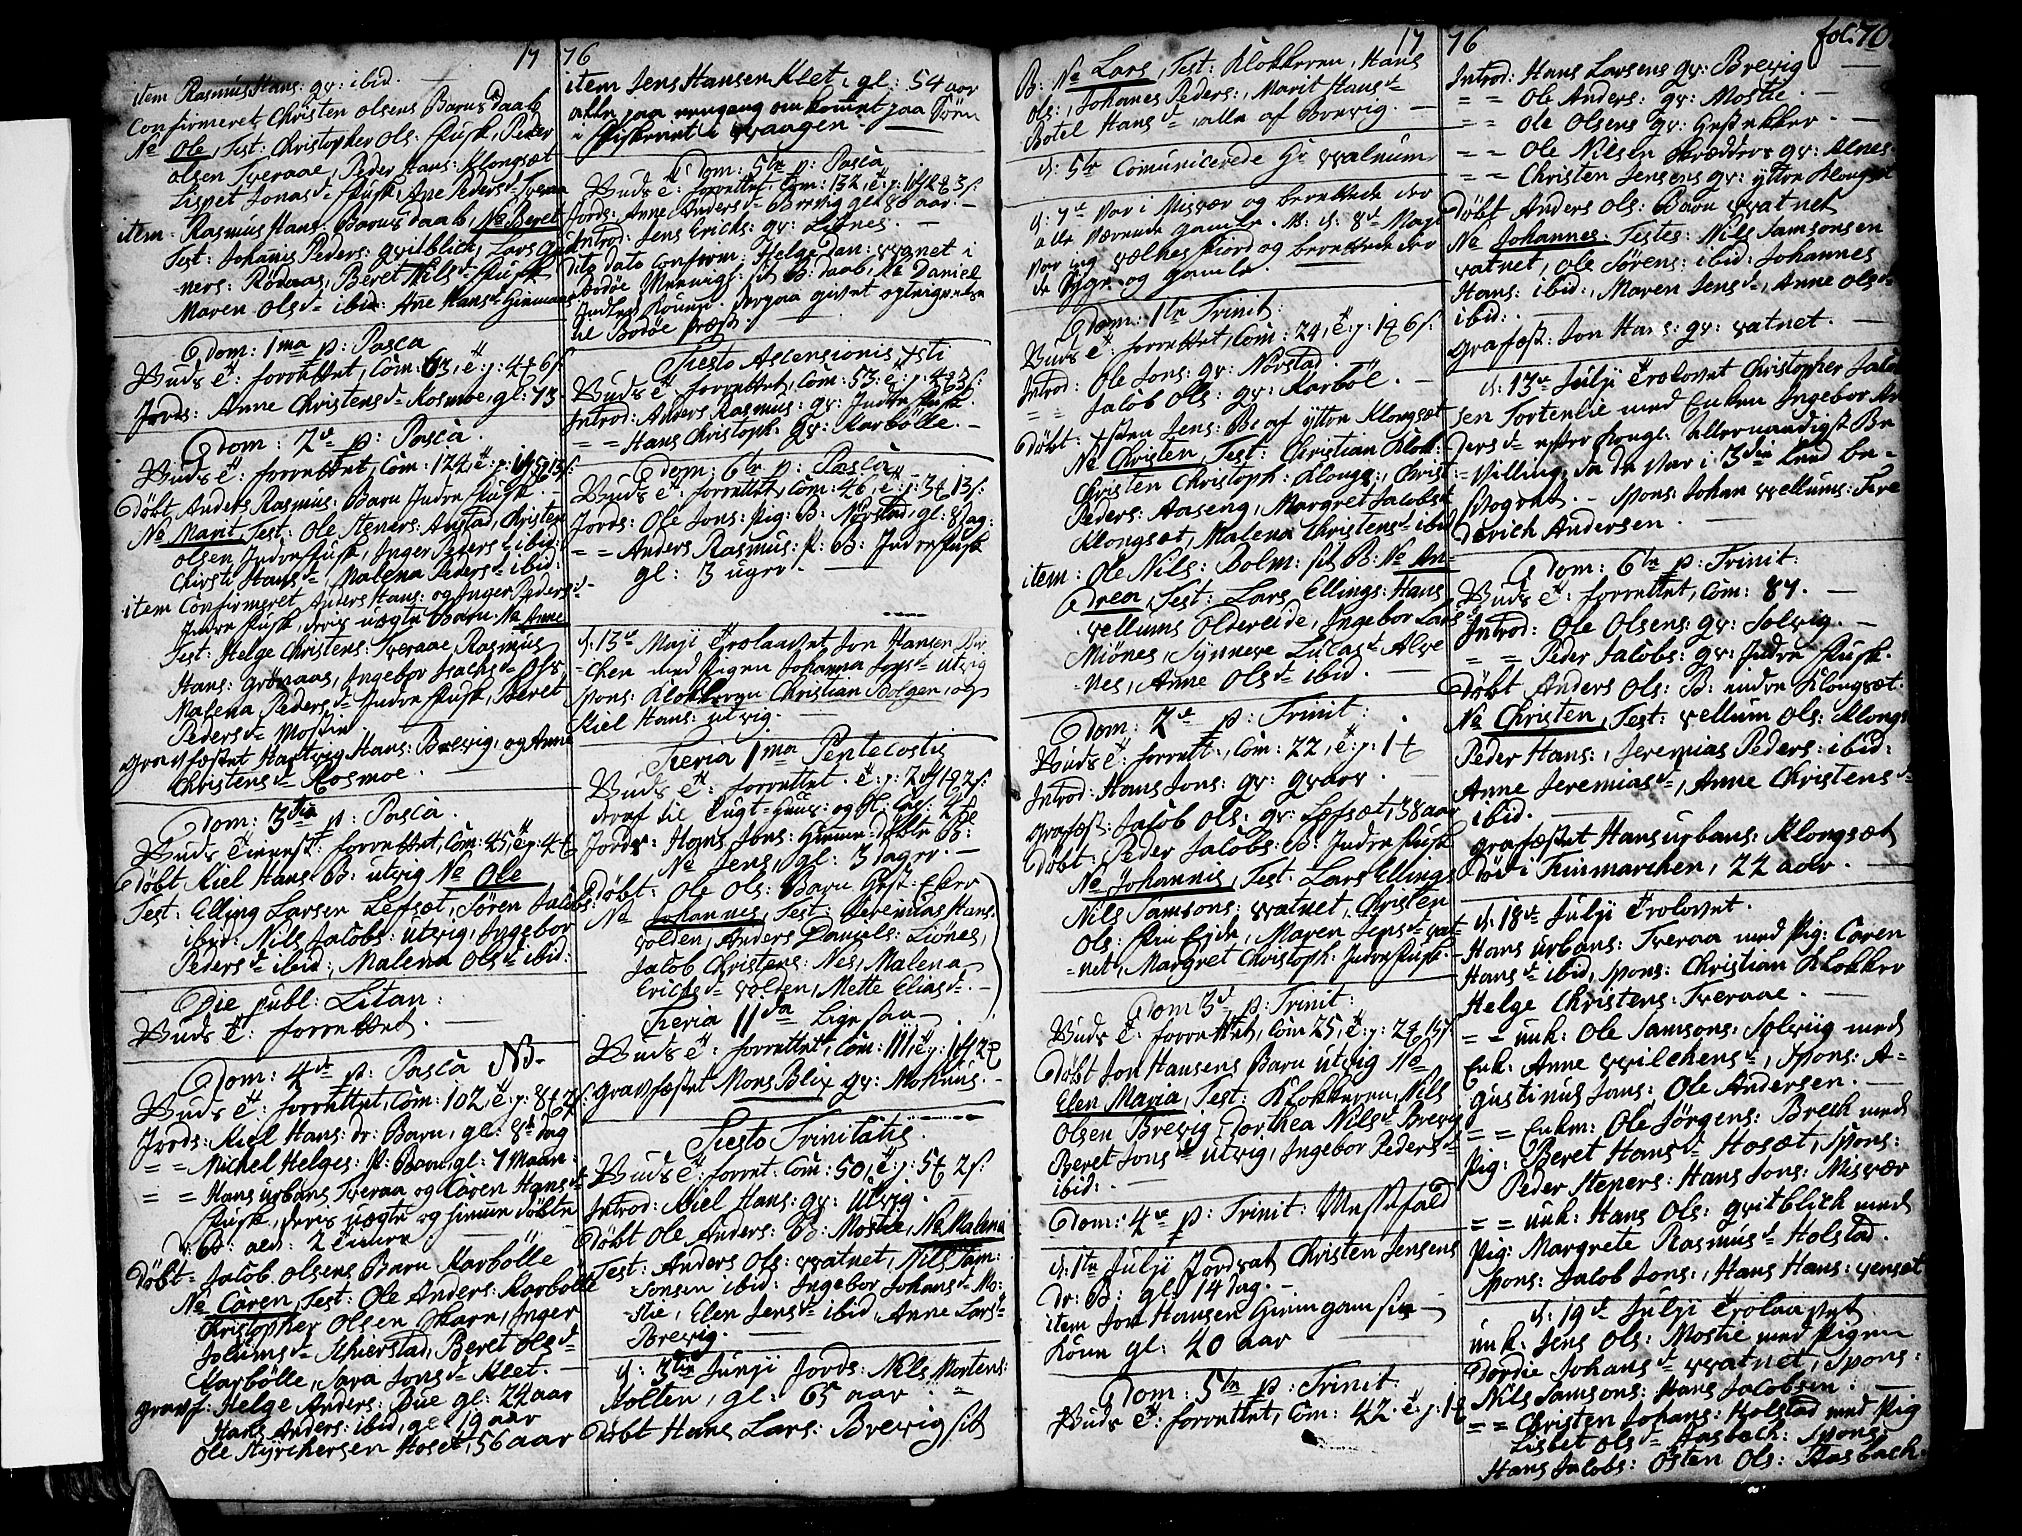 17 76
item Rasmus Hans: qv: ibid.
Confirmeret Christen Olsens Barns daab
Ne Ole, Test: Christopher Ols: Peder
Olsen Tveraae, Peder Hans: Klongsæt
Lisbet Jonasd: Ane Pedersd: Tveraa
item Rasmus Hans: Barns daab, Ne Beret
Test: Johanis Peders: Lars
Rödaas, Beret Nilsd:
Maren Olsd: ibid: Ane Hansd:
Dom: 1ma p: Pasca
Guds T: forrettet, Com: 63, T: p: 4 6 s:
Jords: Anne Christensd: Kosmoe, gl: 73
Dom: 2da p: Pasca.
Guds T: forrettet, Com: 124, T: p:
Döbt Anders Rasmus: Barn Indre
Ne Marit, Test: Ole Steners: Christen
Olsen Indre Inger Peders: ibid:
Hansd: Malena Pedersd: ibid:
item Confirmeret Anders Hans: og Inger Pedersd:
Indre deris uægte Barn: Ne Anne
Test: Helge Christens: Tveraae, Rasmus
Hans: Grönaas, Ingebor
Malena Pedersd: Indre Beret
Pedersd:
Gravfæstet Hartvig Hans: Brevig, og Anne
Christensd: Kosmoe.
Dom: 3tia p: Pasca.
Guds forrettet, Com: 45, T: p: 4
Döbt Kiel Hans: B: utvig Ne Ole
Test: Elling Larsen Lefsæt, Sören Jacobs:
ibid: Nils Jacobs: utvig, Ingebor
Pedersd: ibid:, Malena Olsd: ibid:
Die publ: Litan:
Guds T: forrettet.
Dom: 4ta p: Pasca NB.
Guds T: forrettet, Com: 102, T: p: 8 2 s:
Jords: Kiel Hans: dr: Barn, gl: 8t dag
= = Michel Helges: p: Barn gl: 7 Maan:
= = Hans urbans Tveraa og Caren Hansd:
deris uægte og hiemme döbte
dr: B: æt:
Döbt: Jacob Olsens Barn Karbölle
Ne Caren, Test: Ole Anders: Karbölle
Christopher Olsen Inger
Beret Olsd:
Karbölle, Sara Jonsd: Klet.
gravf: Helge Anders: Bue gl: 24 aar
Hans Anders: ibid, gl: 19 aar
Ole Styrchersen Hoset, 56 aar
item Jens Hansen Klet, gl: 54 aar
alle paa eengang omkommet paa
Fiskeriet i Waagen.
Dom: 5te p: Pasca
Guds T: forrettet, Com: 132, T: p:
Jords: Anne Andersd: Brevig gl: 86 aar.
Introd: Jens Erichs: qv: Lidnes.
dito dato Confirm: Helge Dan: Vatnet i
Bodöe Mennigh: sit B: daab, Ne Daniel
til Bodöe
Festo Ascensionis Xsti
Guds T: forrettet, Com: 53: T: p:
Introd: Anders Rasmus: qv: Indre
= = Hans Christoph: qv: Karbölle.
Dom: 6te p: Pasca
Guds T: forrettet, Com: 46, T: p: 3 13 s:
Jords: Ole Jons: pig: B: Nörstad, gl: 8 dag:
= = Anders Rasmus: p: B: Indre
gl: 3 uger.
d: 13de Maji Trolovet Jon Hansen
med Pigen Johanna utvig
spons: Klokkeren Christian Bolgen, og
Kiel Hans: utvig.
Feria 1ma Pentecostis
Guds T: forrettet. T: p:
deraf til Tugt=Huus: og
Jords: Hans Jons: hiemme döbte B:
Ne Jens, gl: 3 dager.
Döbt: Ole Ols: Barn
Ne Johannes, Test: Jeremias Hans:
Volden, Anders Daniels: Lidnes,
Jacob Christens: Nes, Malena
Erichsd: Volden, Mette Eliasd:
Feria IIda
Guds T: forrettet, Com: 111, T: p:
gravfæstet Mons Blix qv:
Festo Trinitatis.
Guds T: forret: Com: 50, T: p: 5 2 s:
Introd: Kiel Hans: qv: utvig.
Döbt Ole Anders: B: Mostie, Ne Malena
Test: Anders Ols: Vatnet, Nils Sam-
sonsen ibid: Ingebor Johansd: Mo-
stie, Elen Jensd: ibid, Anne Larsd:
Brevig.
d: 3tie Junii Jords: Nils Mortens:
Holten, gl: 65 aar
Döbt Hans Lars: Brevig sit
17 76 fol: 70.
B: Ne Lars, Test: Klokkeren, Hans
Ols:, Johannes Peders:, Marit Hansd:
Botel Hansd: alle af Brevig.
d: 5te Comunicerede Hr Walnum
d: 7de var i Misvær og berettede der
Gamle. d: 8de Maji
var ieg Vælnes fiord og berettede der
de Syge og Gamle.
Dom: 1te Trinit:
Guds T: forrettet, Com: 24, T: p: 1 6 s:
Introd: Ole Jons: qv: Nörstad.
= = Jacob Ols: qv: Karböe.
Döbt: Xsten Jens: B: af yttre Klongsæt
Ne Christen, Test: Christian Klok:
Christen Christoph: Klongs:, Christ:
Peders: Aaseng, Margret Jacobsd:
Klongsæt, Malena Christensd: ibid
item: Ole Nils: Bolm: sit B: Ne An-
dreas, Test: Lars Ellings: Hans
Vellums Oldereide, Ingebor Larsd:
Miönes, Synneve Lucasd: Alve
nes, Anne Olsd: ibid.
Dom: 2de p: Trinit:
Guds T: forrett:, Com: 22, T: p: 1
Introd: Hans Jons: qv:
Grafæst: Jacob Ols: qv: Lefsæt, 38 aar
Döbt: Peder Jacobs: B: Indre
Ne Johannis, Test: Lars Ellings
Nils Samsons: Vatnet, Christen
Ols: Maren Jensd: Vat-
net, Margret Christoph: Indre
Dom 3de p: Trinit:
Guds T: forrettet, Com 25, T: p: 2
Döbt Jon Hansens Barn utvig Ne
Elen Maria, Test: Klokkeren, Nils
Olsen Brevig, Dorthea Nilsd: Brevig
Beret Jonsd: utvig, Ingebor Pedersd:
ibid:
Dom: 4de p: Trinit: Messefald
d: 1te Julii Jordsat Christen Jensens
dr: B: gl: 14 dag.
item Jon Hansen
Koun gl: 20 aar
Dom: 5te p: Trinit:
Guds T: forrettet, Com: 42. T: p: 1
Introd: Hans Larsens qv: Brevig
= = Ole Anders: qv: Mostie.
= = Ole Olsens qv:
= = Ole Nilsen Skrædders qv: Alnes
= = Christen Jensens qv: yttre Klongsæt
Döbt Anders Ols: Barn Vatnet
Ne Johannes. Testes: Nils Samsonsen
Vatnet, Ole Sörens: ibid: Johannes
Hans: ibid:, Maren Jensd:, Anne Olsd:
ibid:
Grafæst: Jon Hans: qv: Vatnet.
d: 13de Julii Trolovet Christopher Jacob
sen Tortenlie med Enken Ingebor An
dersd: efter Kongl: allernaadigst Be
villing, da de var i 3die Leed be-
svogret. Spons: Johan Vellums: Fre
derich Andersen.
Dom: 6te p: Trinit:
Guds T: forrettet, Com: 87.
Introd: Ole Olsens: qv: Solvig.
= = Peder Jacobs: qv: Indre
Döbt Anders Ols: B: indre Klongsæt:
Ne Christen, Test: Vellum Ols: Klongs
Peder Hans:, Jeremias Peders: ibid:
Anne Jeremiasd:, Anne Christensd:
ibid.
Grafæstet Hans urbans: Klongsæt
död i Finmarchen, 22 aar.
d: 18de Julii Trolovet.
Hans urbans: Tveraa med Pig: Caren
Hansd: ibid, spons: Christian Klokker
Helge Christens: Tveraae.
= = unk: Ole Samsons: Solvig med
Enk: Anne Wilchensd:, Spons: A-
gustinus Jons: Ole Andersen.
= = Enkm: Ole Jörgens: Brech med
Pig: Beret Hansd: Hosæt, Spons:
Peder Steners: Hans Jons: Misvær
= = unk: Hans Ols: Qvitblich med
Pig: Margrete Rasmusd: Holstad.
Spons: Jacob Jons:, Hans Hans: Venset
d: 19de Julii Trolovet
unk: Jens Ols: Mostie med Pigen
Dordie Johansd: Vatnet, Spons:
Nils Samsons: Hans Jacobsen.
= = Christen Johans: Holstad med Pig
Lisbet Olsd: Aasbach: Spons:
Hans Jacobs: Osten Ols: Aasbach.